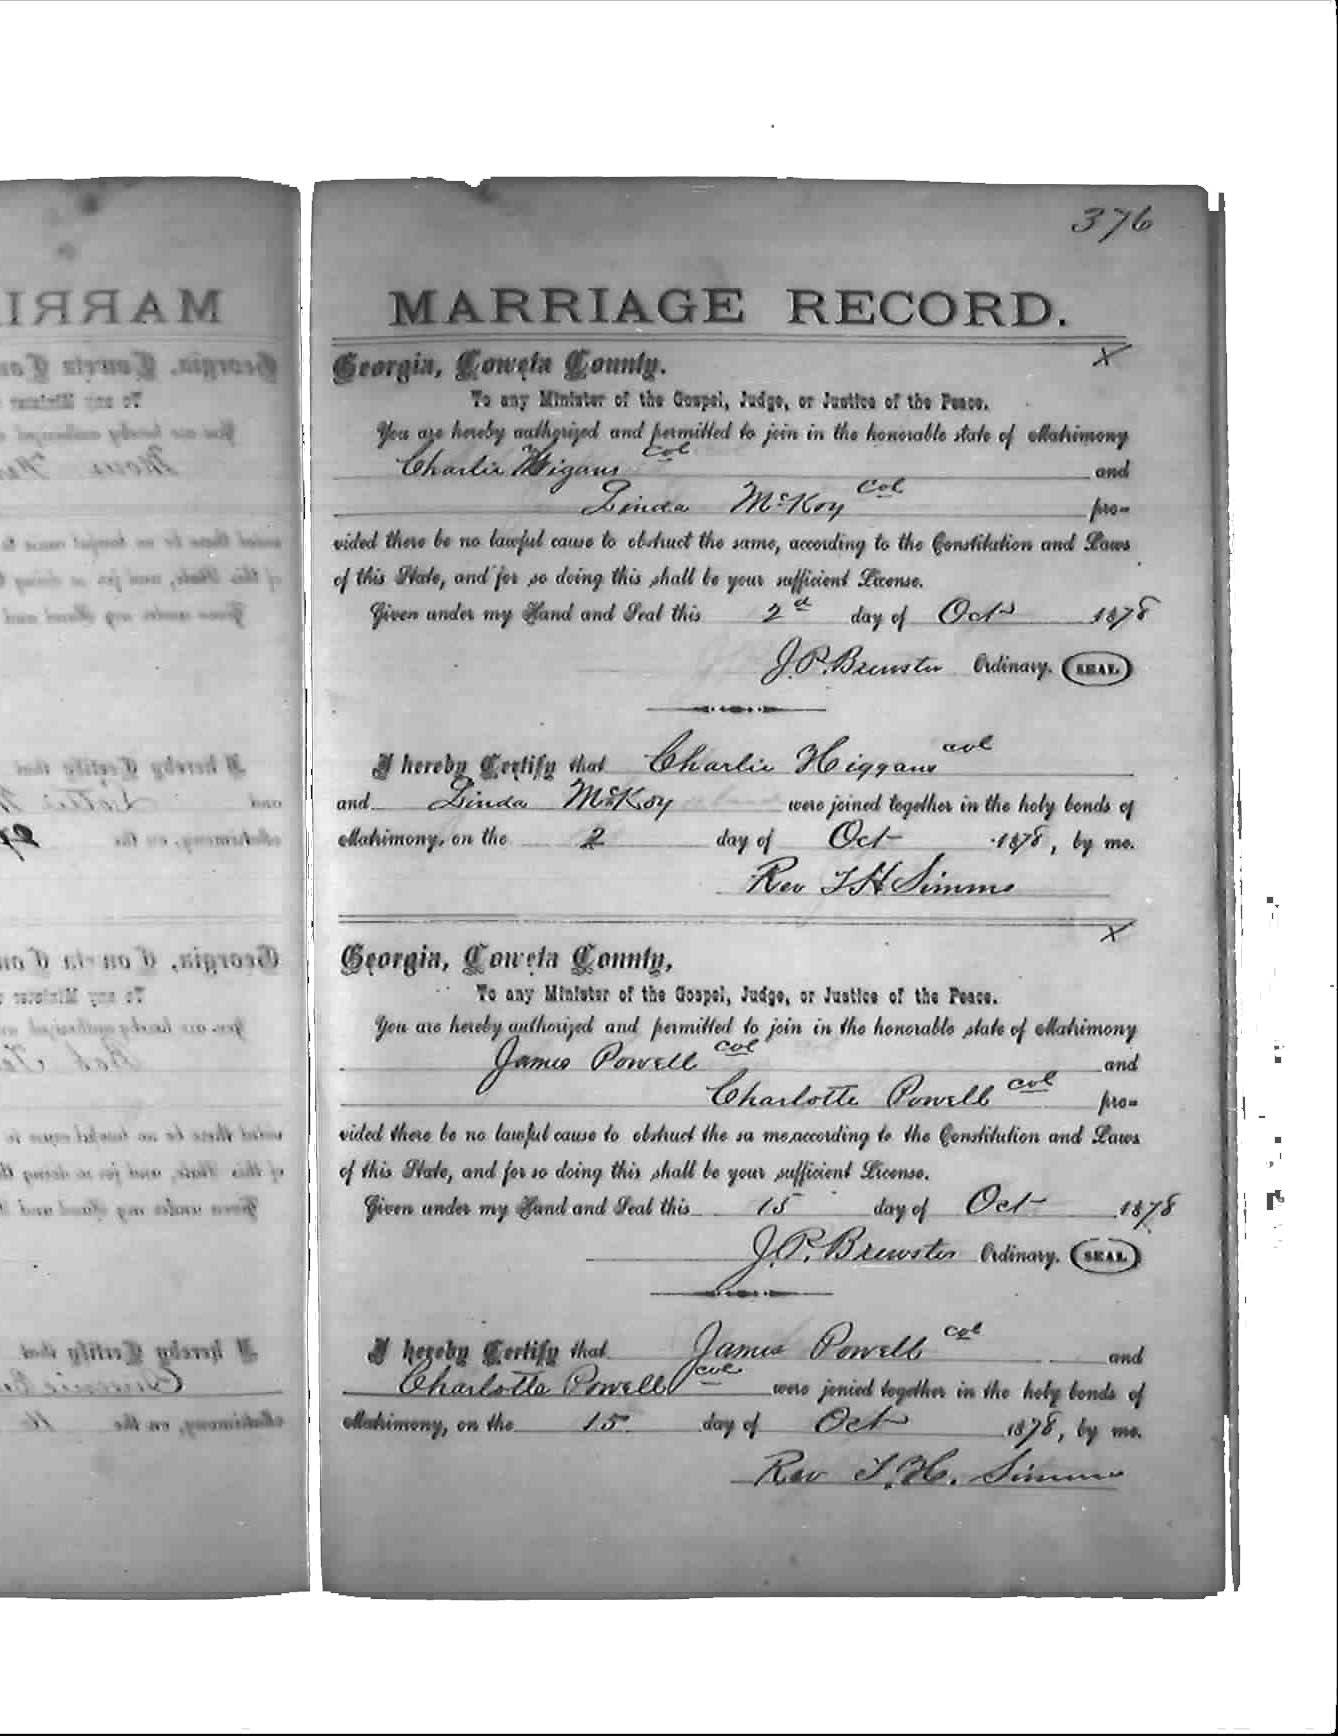 376
MARRIAGE RECORD.
Georgia, Coweta County. X
To any Minister of the Gospel, Judge, or Justice of the Peace.
You are hereby authorized and permitted to join in the honorable state of Matrimony
Charlie Higans col and
Linda McKoy col pro-
vided there be no lawful cause to obstruct the same, according to the Constitution and Laws
of this State, and for so doing this shall be your sufficient License.
Given under my Hand and Seal this 2d day of Oct 1878
J. P. Brewster Ordinary. SEAL
I hereby Certify that Charlie Higgans col
and Linda McKoy were joined together in the holy bonds of
Matrimony, on the 2 day of Oct 1878, by me.
Rev T H Simms
X
Georgia, Coweta County,
To any Minister of the Gospel, Judge, or Justice of the Peace.
You are hereby authorized and permitted to join in the honorable state of Matrimony
James Powell col and
Charlotte Powell col pro-
vided there be no lawful cause to obstruct the sa me, according to the Constitution and Laws
of this State, and for so doing this shall be your sufficient License.
Given under my Hand and Seal this 15 day of Oct 1878
J. P. Brewster Ordinary. SEAL
I hereby Certify that James Powell col and
Charlotte Powell col were jonied together in the holy bonds of
Matrimony, on the 15 day of Oct 1878, by me.
Rev T. H. Simms